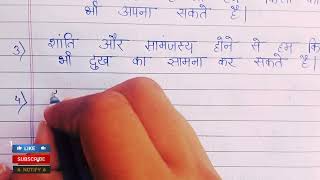 भी अपना सकते है।
3) शांति और सामंजस्य होने से हम कि
भी दुख का सामना कर सकते है।
4)
LIKE
SUBSCRIBE
NOTIFY